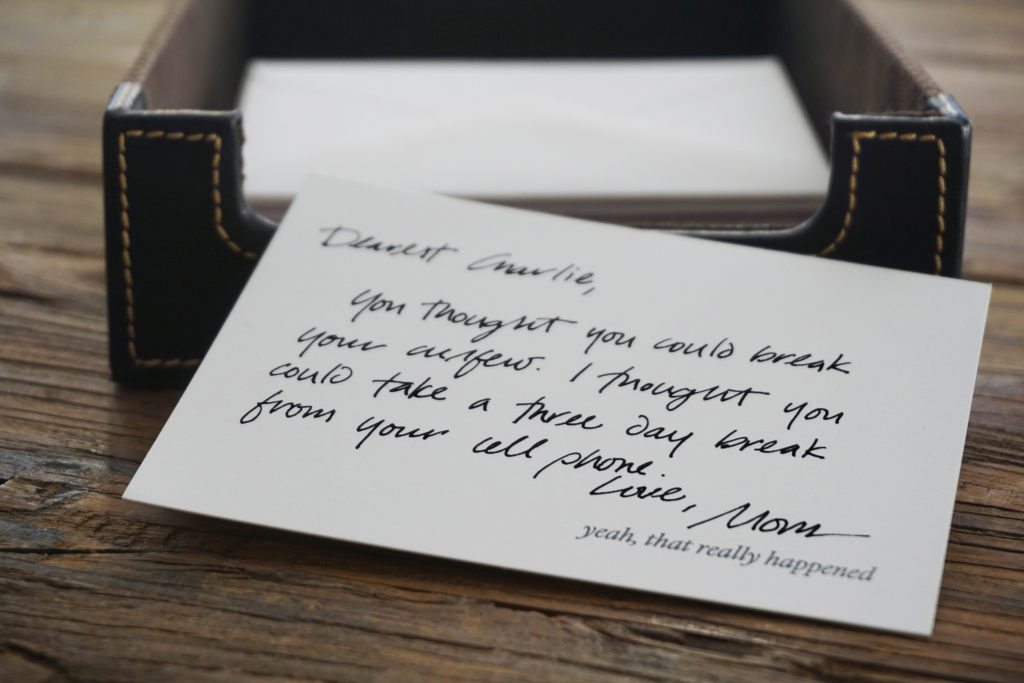 Dearest Charlie,
You thought you could break
your curfew. I thought you
could take a three day break
from your cell phone.
Love, Mom
yeah, that really happened